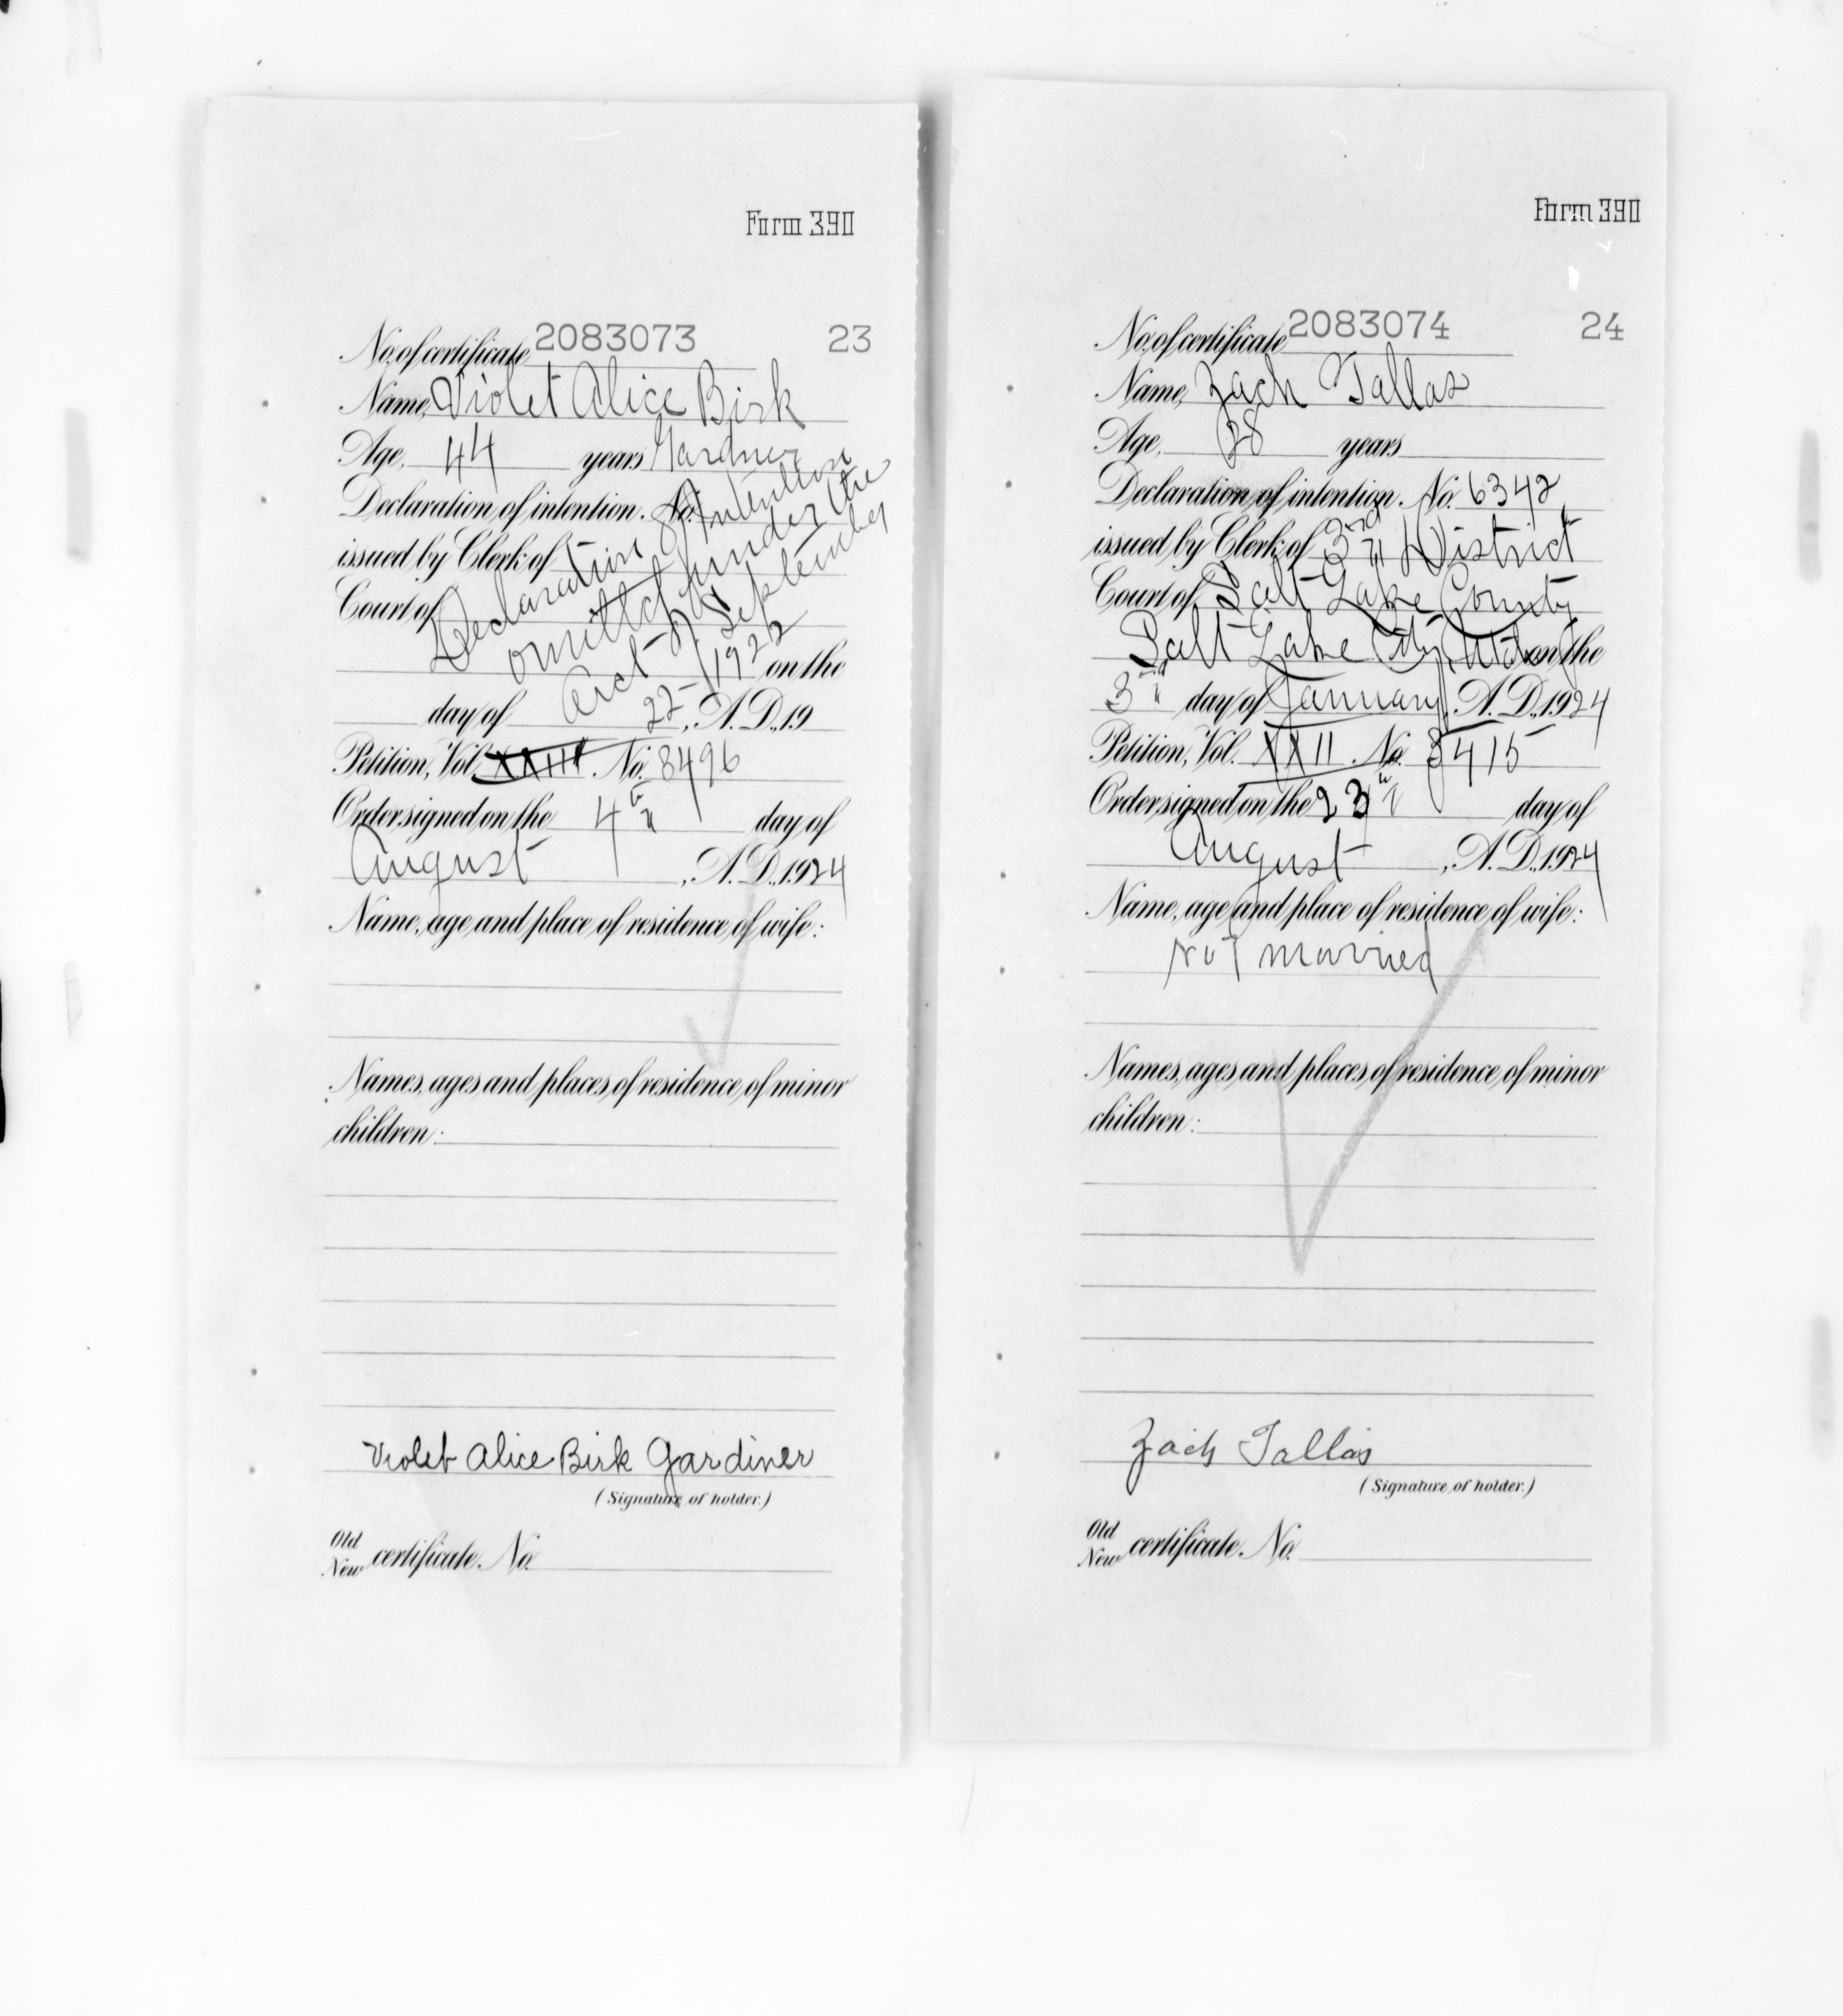 Form 390
No. of certificate 2083073 23
Name, Violet Alice Birk
Age, 44 years Gardner
Declaration of intention, No.
issued by Clerk of
Court of
Declaration of Intention
omitted under the
Act of September
22-1922 on the
day of , A.D., 19
Petition, Vol. XXIII No. 8496
Order signed on the 4th day of
August , A.D., 1924
Name, age and place of residence of wife:
Names, ages and places of residence of minor
children:
Violet Alice Birk Gardiner
(Signature of holder.)
Old
New certificate No.
Form 390
No. of certificate 2083074 24
Name, Zach Tallas
Age, 28 years
Declaration of intention, No. 6342
issued by Clerk of 3rd District
Court of Salt Lake County
Salt Lake City, Utah on the
3 day of January, A.D., 1924
Petition, Vol. XXII No. 8415
Order signed on the 23 day of
August , A.D., 1924
Name, age and place of residence of wife:
Not married
Names, ages and places of residence of minor
children:
Zach Tallas
(Signature of holder.)
Old
New certificate No.